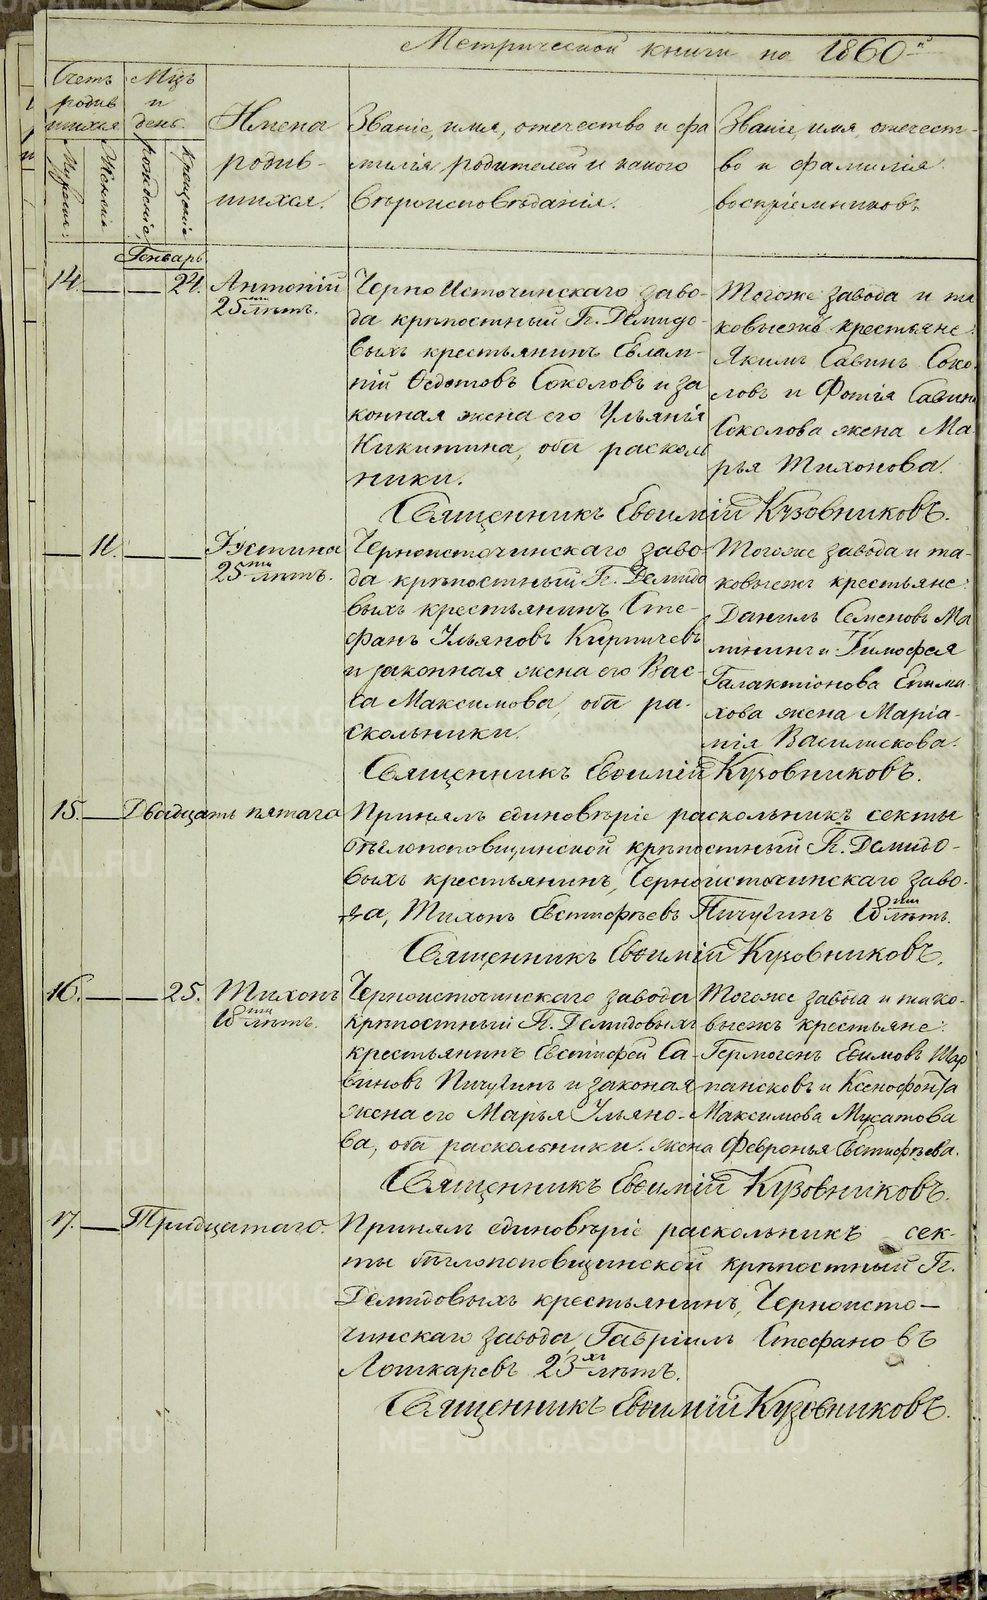 Метрической книги на 1860й
Счетъ
родив
шихся
Мѣцъ
и
день.
Мужеск:
Женскій
рожденія,
крещенія
Имена
родив-
шихся.
Званіе, имя, отечество и фа
милія родителей и какого
вѣроисповѣданія.
Званіе, имя, отечест-
во и фамилія
воспріемниковъ
Генварь
14. — — 24. Антоній
25ти лѣтъ.
Черно Источинскаго заво-
да крѣпостный Гг. Демидо-
выхъ крестьянинъ Евлам-
пій Федотовъ Соколовъ и за
конная жена его Ульянія
Никитина, оба расколь
ники.
Тогоже завода и та
ковыежъ крестьяне:
Якимъ Савинъ Соко-
ловъ и Фотія Савина
Соколова жена Ма-
рья Тихонова.
Священникъ Евѳимій Кузовниковъ.
— 11. — — Іустина
25ти лѣтъ.
Черноисточинскаго заво-
да крѣпостный Гг. Демидо
выхъ крестьянинъ Сте-
фанъ Ульяновъ Кирпичевъ
и законная жена его Вас-
са Максимова, оба ра-
скольники.
Тогоже завода и та-
ковыежъ крестьяне:
Данилъ Семеновъ Ма
лининъ и Тимофея
Галактіонова Епима-
хова жена Маріа-
нія Василискова.
Священникъ Евѳимій Кузовниковъ.
15. — Двадцать пятаго
Принялъ единовѣріе раскольникъ секты
бѣглопоповщинской крѣпостный Гг. Демидо-
выхъ крестьянинъ, Черноисточинскаго заво-
да, Тихонъ Евстифѣевъ Пичугинъ 18ти лѣтъ.
Священникъ Евѳимій Кузовниковъ.
16. — — 25. Тихонъ
18ти лѣтъ.
Черноисточинскаго завода
крѣпостный Гг. Демидовыхъ
крестьянинъ Евстифей Са-
виновъ Пичугинъ и законая
жена его Марья Ульяно-
ва, оба раскольники.
Тогоже завода и тако-
выежъ крестьяне:
Гермогенъ Евимовъ Шар
пансковъ и Ксенофонта
Максимова Мусатова
жена Февронья Евстифѣева.
Священникъ Евѳимій Кузовниковъ.
17. — Тридцатаго.
Принялъ единовѣріе раскольникъ сек-
ты бѣглопоповщинской крѣпостный Гг.
Демидовыхъ крестьянинъ, Черноисто-
чинскаго завода, Гавріилъ Стефановъ
Лошкаревъ 23хъ лѣтъ.
Священникъ Евѳимій Кузовниковъ.
METRIKI.GASO-URAL.RU